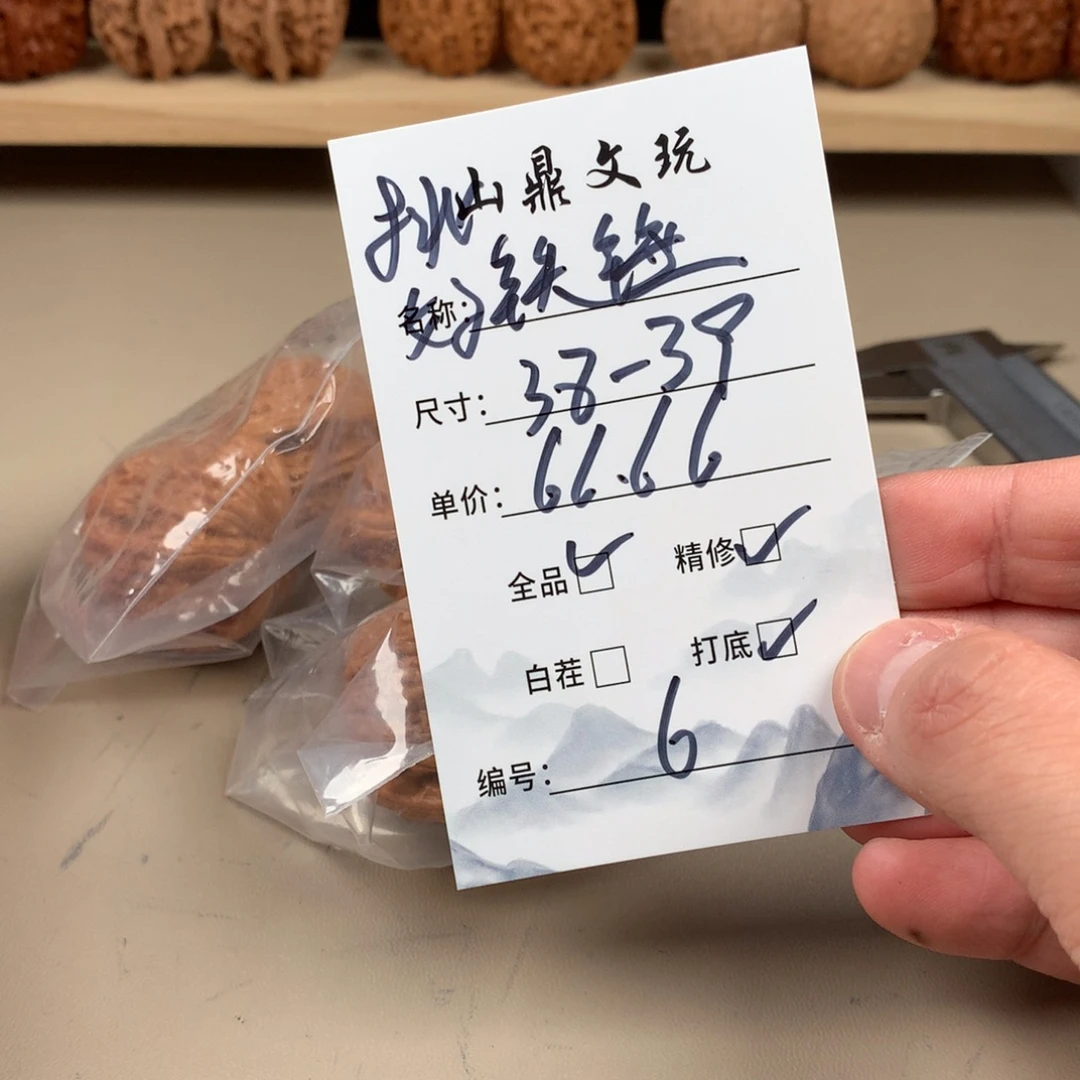 山鼎文玩
挑好
名称：铁锤
尺寸：38-39
单价：66.66
全品 ✓ 精修 ✓
白茬 □ 打底 ✓
编号：6